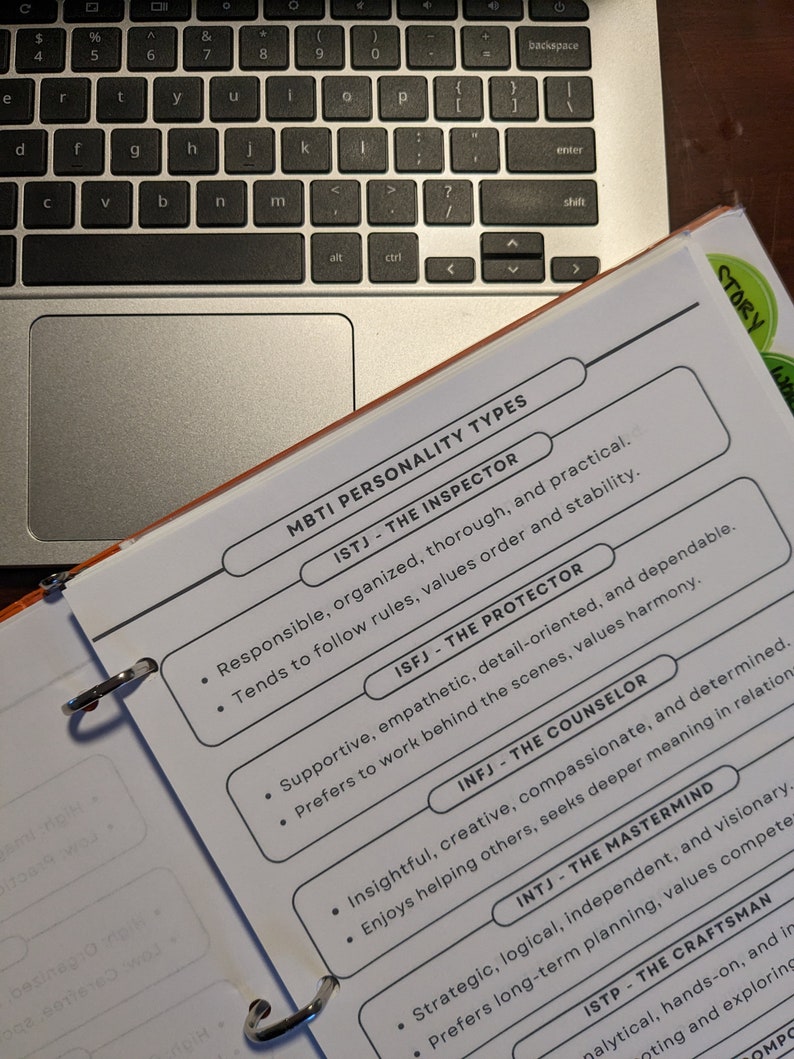 $ % ^ & * ( ) - +
4 5 6 7 8 9 0 - = backspace
e r t y u i o p { [ } ] | \
d f g h j k l : ; " ' enter
c v b n m < , > . ? / shift
alt ctrl
STORY
MBTI PERSONALITY TYPES
ISTJ - THE INSPECTOR
• Responsible, organized, thorough, and practical.
• Tends to follow rules, values order and stability.
ISFJ - THE PROTECTOR
• Supportive, empathetic, detail-oriented, and dependable.
• Prefers to work behind the scenes, values harmony.
INFJ - THE COUNSELOR
• Insightful, creative, compassionate, and determined.
• Enjoys helping others, seeks deeper meaning in
INTJ - THE MASTERMIND
• Strategic, logical, independent, and visionary.
• Prefers long-term planning, values
ISTP - THE CRAFTSMAN
hands-on, and
and exploring